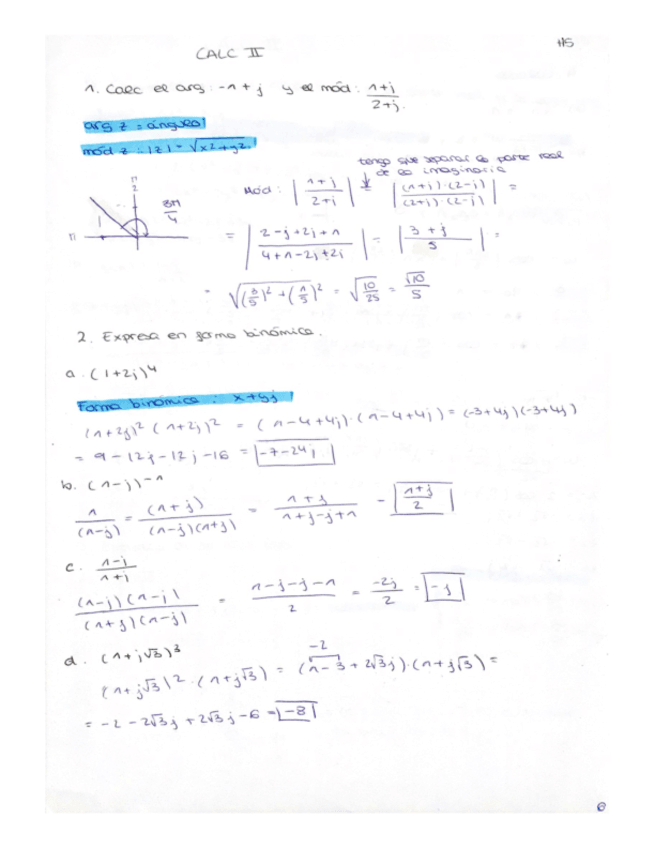 #5
CALC II
1. Calc el arg: -1+j y el mód: \frac{1+j}{2+j}.
arg z = ángulo
mód z = |z| = √x²+y²
tengo que separar la parte real
de la imaginaria
3π/4
Mód: |\frac{1+j}{2+j}| = |\frac{(1+j)·(2-j)}{(2+j)·(2-j)}| =
= |\frac{2-j+2j+1}{4+1-2j+2j}| = |\frac{3+j}{5}| =
= √(3/5)²+(1/5)² = √10/25 = √10/5
2. Expresa en forma binómica.
a. (1+2j)⁴
Forma binómica: x+yj
(1+2j)² (1+2j)² = (1-4+4j)·(1-4+4j) = (-3+4j)(-3+4j)
= 9-12j-12j-16 = -7-24j
b. (1-j)⁻¹
\frac{1}{(1-j)} = \frac{(1+j)}{(1-j)(1+j)} = \frac{1+j}{1+j-j+1} = \frac{1+j}{2}
c. \frac{1-j}{1+j}
\frac{(1-j)(1-j)}{(1+j)(1-j)} = \frac{1-j-j-1}{2} = \frac{-2j}{2} = -j
d. (1+j√3)³
-2
(1+j√3)²·(1+j√3) = (1-3+2√3j)·(1+j√3) =
= -2-2√3j+2√3j-6 = -8
6